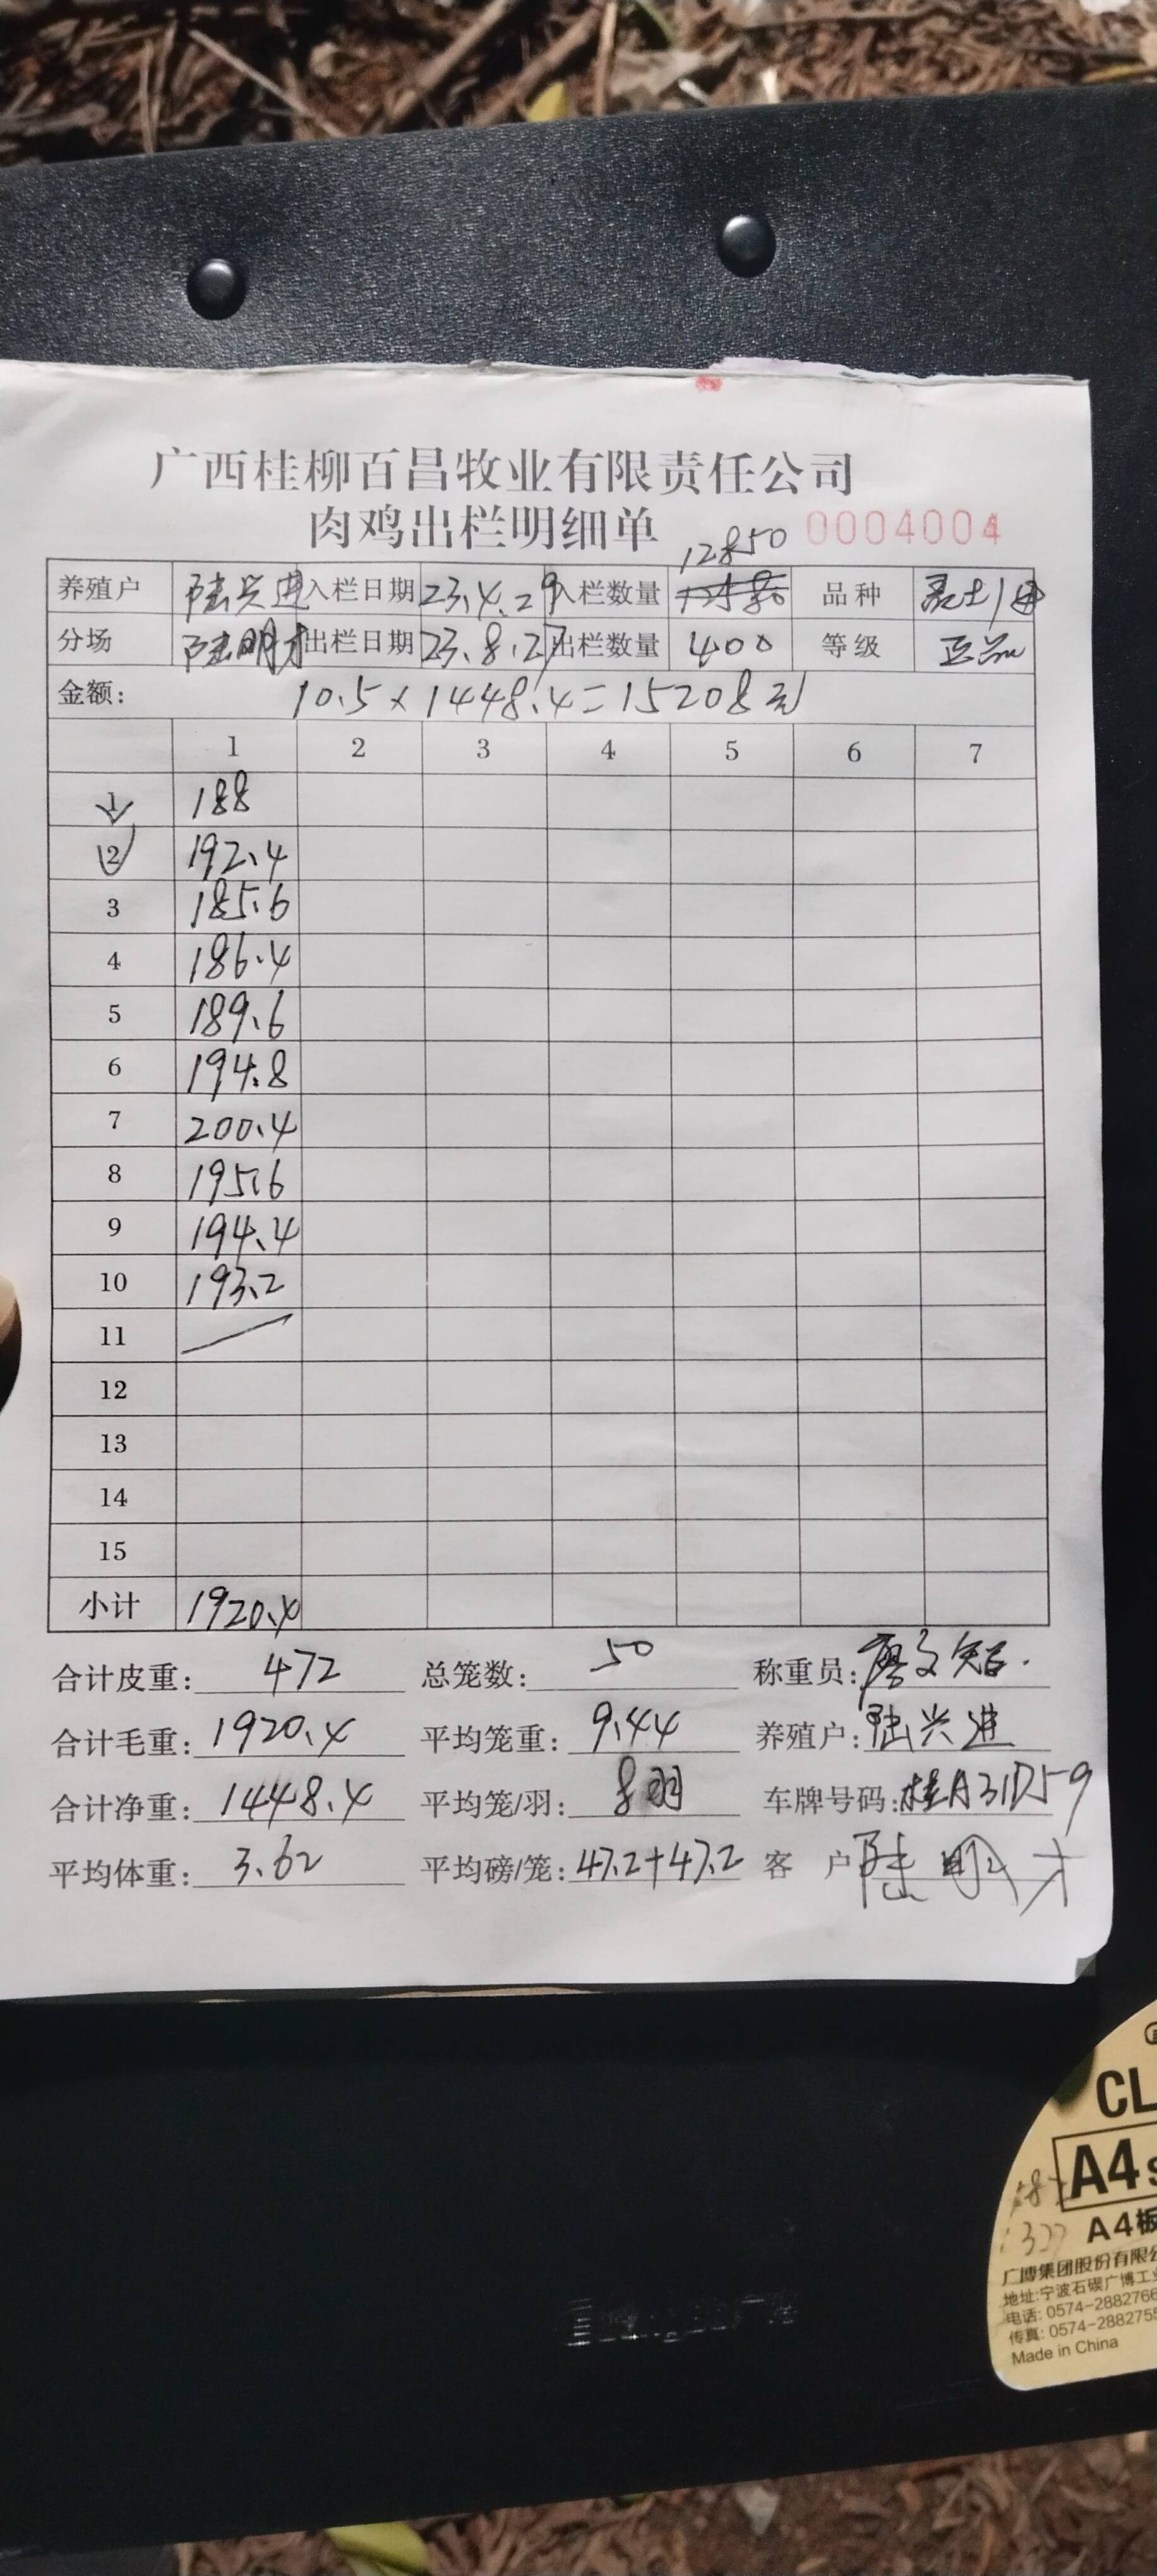 广西桂柳百昌牧业有限责任公司
肉鸡出栏明细单 0004004
12850
养殖户 陆兴进 入栏日期 23.4.29 入栏数量 品种
分场 陆明才 出栏日期 23.8.27 出栏数量 400 等级 正品
金额: 10.5×1448.4=15208元
1 2 3 4 5 6 7
1 188
2 192.4
3 185.6
4 186.4
5 189.6
6 194.8
7 200.4
8 195.6
9 194.4
10 193.2
11
12
13
14
15
小计 1920.4
合计皮重: 472 总笼数: 50 称重员: 廖文
合计毛重: 1920.4 平均笼重: 9.44 养殖户: 陆兴进
合计净重: 1448.4 平均笼/羽: 8羽 车牌号码: 桂A31D59
平均体重: 3.62 平均磅/笼: 47.2+47.2 客 户 陆明才
CL
A4
A4板
广博集团股份有限公
地址:宁波石碶广博工业
电话: 0574-2882766
传真: 0574-2882755
Made in China